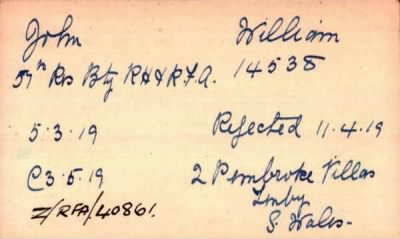 John William
57th Rs Bty RH & R.F.A. 14538
5.3.19 Rejected 11.4.19
C3.5.19 2 Pembroke Villas
Z/RFA/40861. Tenby
S. Wales-